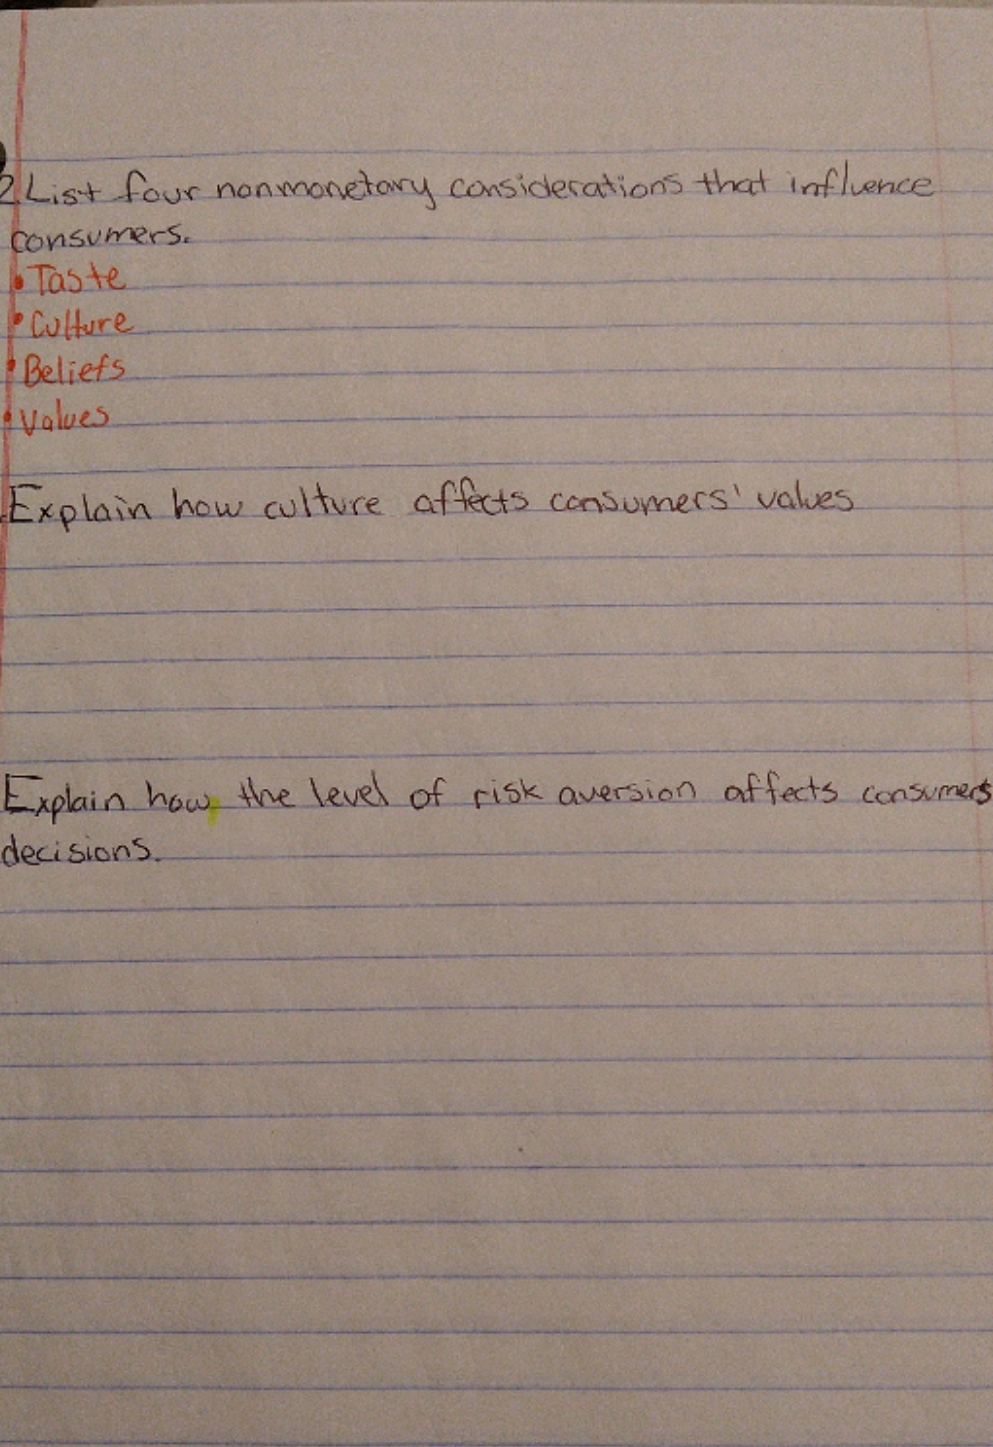 2. List four nonmonetary considerations that influence
consumers.
• Taste
• Culture
• Beliefs
• Values
Explain how culture affects consumers' values
Explain how the level of risk aversion affects consumers
decisions.